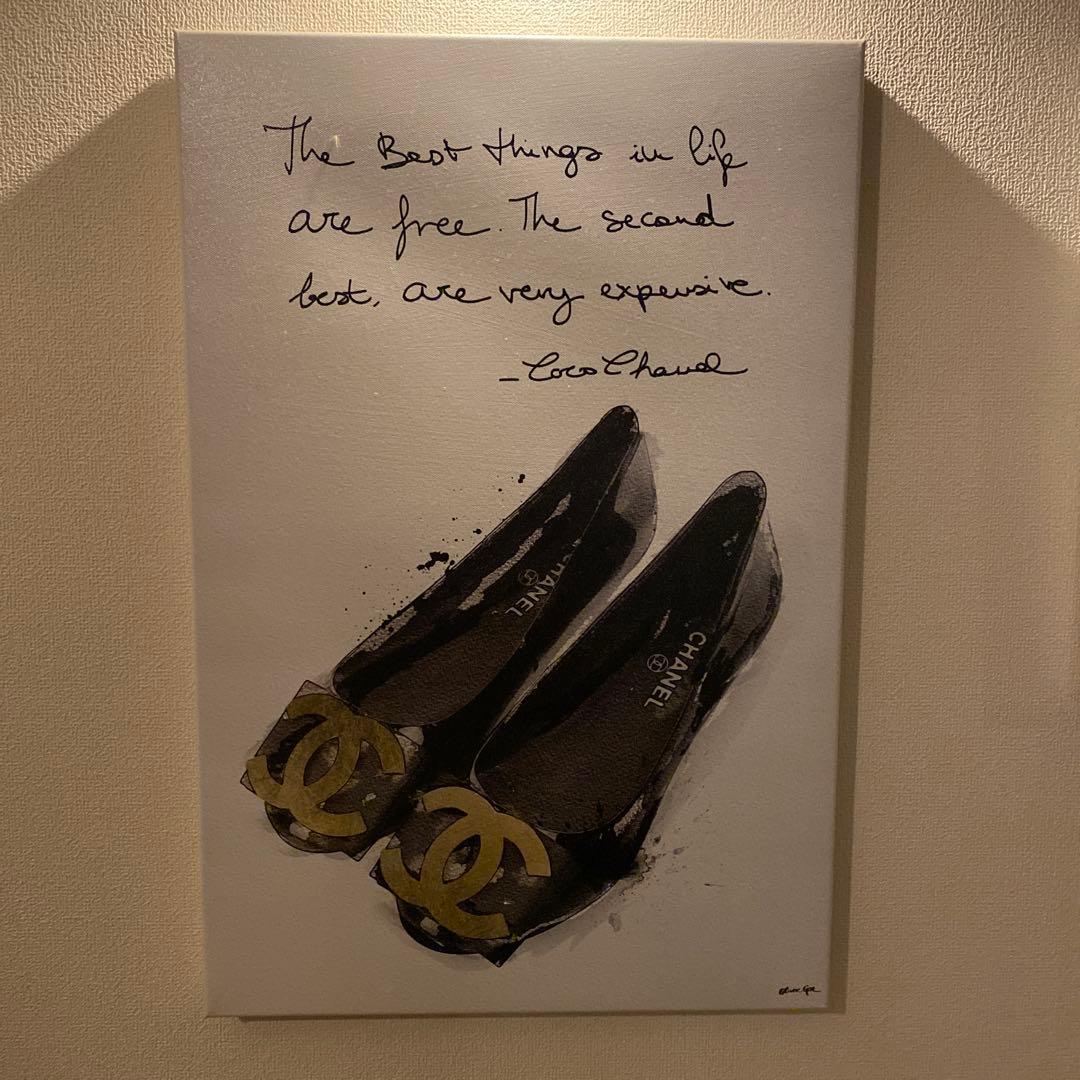 The Best things in life
are free. The second
best, are very expensive.
- Coco Chanel
CHANEL
CHANEL